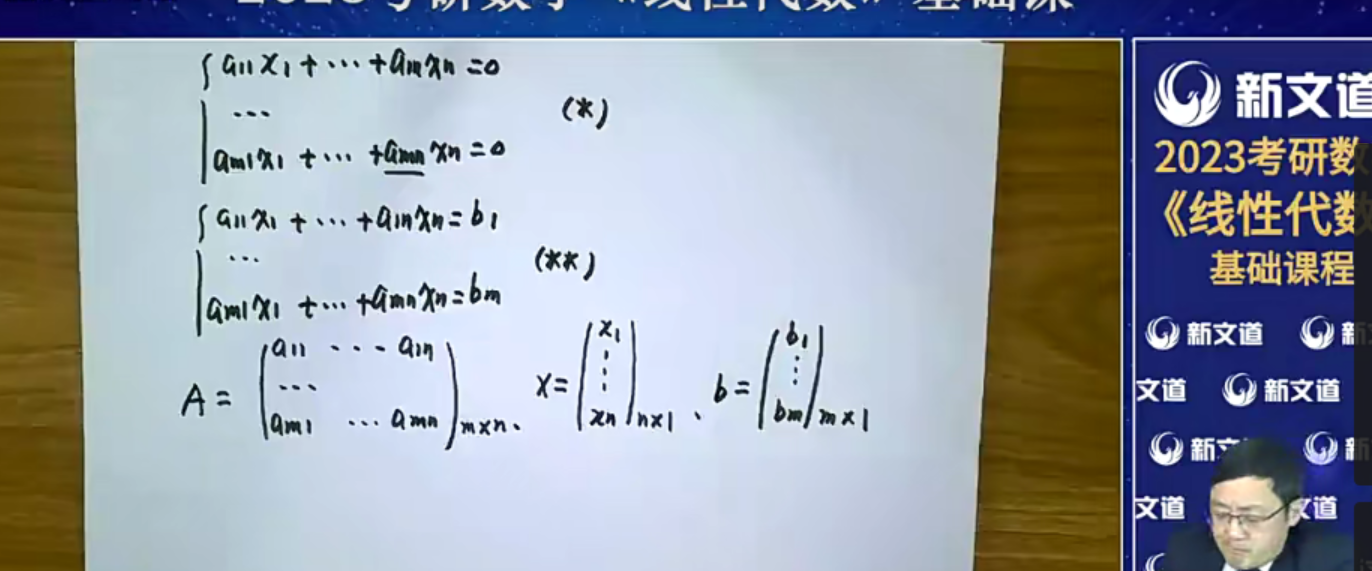 2023考研数学《线性代数》基础课
a11x1 + ··· + a1nxn = 0
···
(*)
am1x1 + ··· + amnxn = 0
a11x1 + ··· + a1nxn = b1
···
(**)
am1x1 + ··· + amnxn = bm
A = (a11 ··· a1n
···
am1 ··· amn)m×n、
X = (x1
⋮
xn)n×1、
b = (b1
⋮
bm)m×1
新文道
2023考研数
《线性代数
基础课程
新文道 新
文道 新文道
新文 新
文道 文道